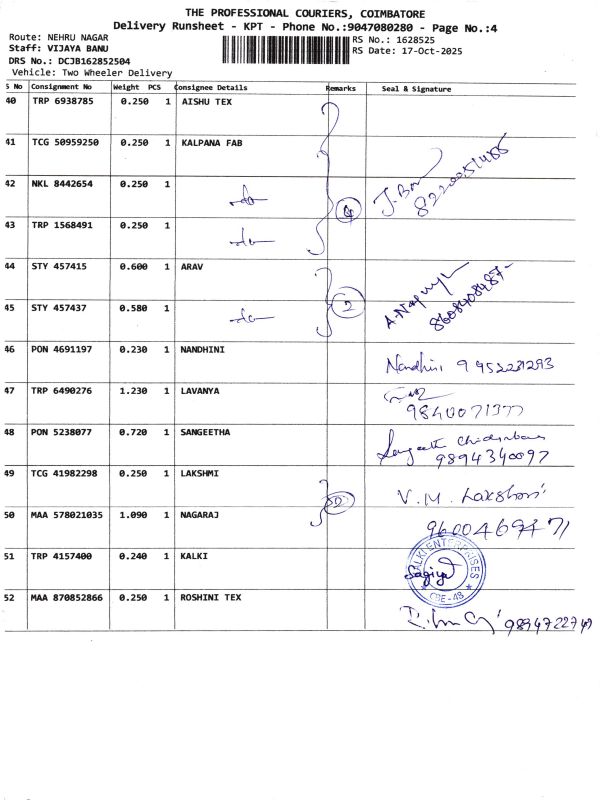 THE PROFESSIONAL COURIERS, COIMBATORE
Delivery Runsheet - KPT - Phone No.:9047080280 - Page No.:4
Route: NEHRU NAGAR
RS No.: 1628525
Staff: VIJAYA BANU
RS Date: 17-Oct-2025
DRS No.: DCJB162852504
Vehicle: Two Wheeler Delivery
S No Consignment No Weight PCS Consignee Details Remarks Seal & Signature
40 TRP 6938785 0.250 1 AISHU TEX
41 TCG 50959250 0.250 1 KALPANA FAB
42 NKL 8442654 0.250 1 -do- 4
43 TRP 1568491 0.250 1 -do-
44 STY 457415 0.600 1 ARAV
45 STY 457437 0.580 1 -do- 2
8608408487-
46 PON 4691197 0.230 1 NANDHINI Nandhini
47 TRP 6490276 1.230 1 LAVANYA
48 PON 5238077 0.720 1 SANGEETHA
9894340097
49 TCG 41982298 0.250 1 LAKSHMI 2 V.M. Lakshmi
50 MAA 578021035 1.090 1 NAGARAJ
9600469471
51 TRP 4157400 0.240 1 KALKI
KALKI ENTERPRISES
CBE-48
52 MAA 870852866 0.250 1 ROSHINI TEX